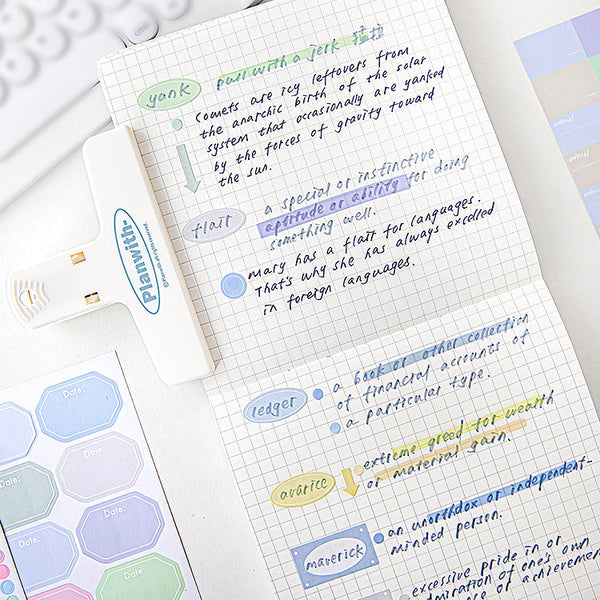 yank
pull with a jerk 猛拉
Comets are icy leftovers from
the anarchic birth of the solar
system that occasionally are yanked
by the forces of gravity toward
the sun.
flair
a special or instinctive
aptitude or ability for doing
something well.
Mary has a flair for languages.
That's why she has always excelled
in foreign languages.
Planwith-
ledger
a book or other collection
of financial accounts of
a particular type.
avarice
extreme greed for wealth
or material gain.
maverick
an unorthdox or independent-
minded person.
excessive pride in or
admiration of one's own
or achievemen
Date:
Date:
Date:
Date:
Date:
Date:
Project
Project
Project